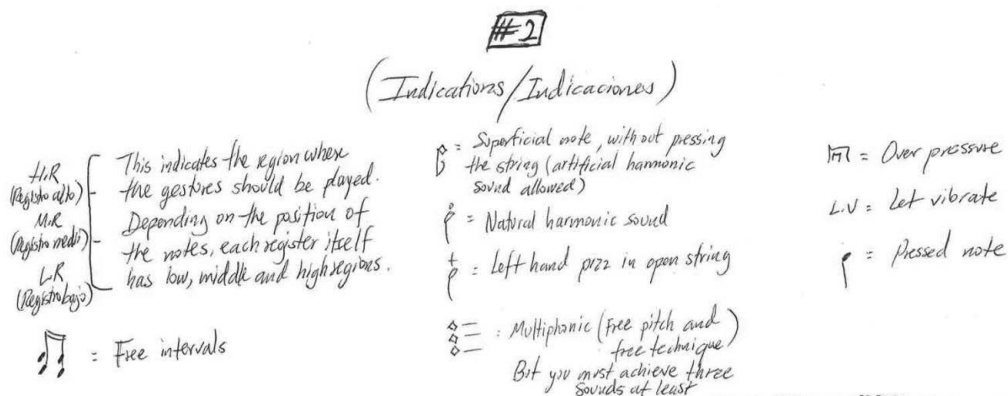 #2
(Indications/Indicaciones)
H.R
(Registro alto)
M.R
(Registro medio)
L.R
(Registro bajo)
This indicates the region where
the gestures should be played.
Depending on the position of
the notes, each register itself
has low, middle and high regions.
= Free intervals
= Superficial note, without pressing
the string (artificial harmonic
sound allowed)
= Natural harmonic sound
= Left hand pizz in open string
= Multiphonic (Free pitch and
free technique)
But you must achieve three
sounds at least
= Over pressure
L.V = Let vibrate
= Pressed note